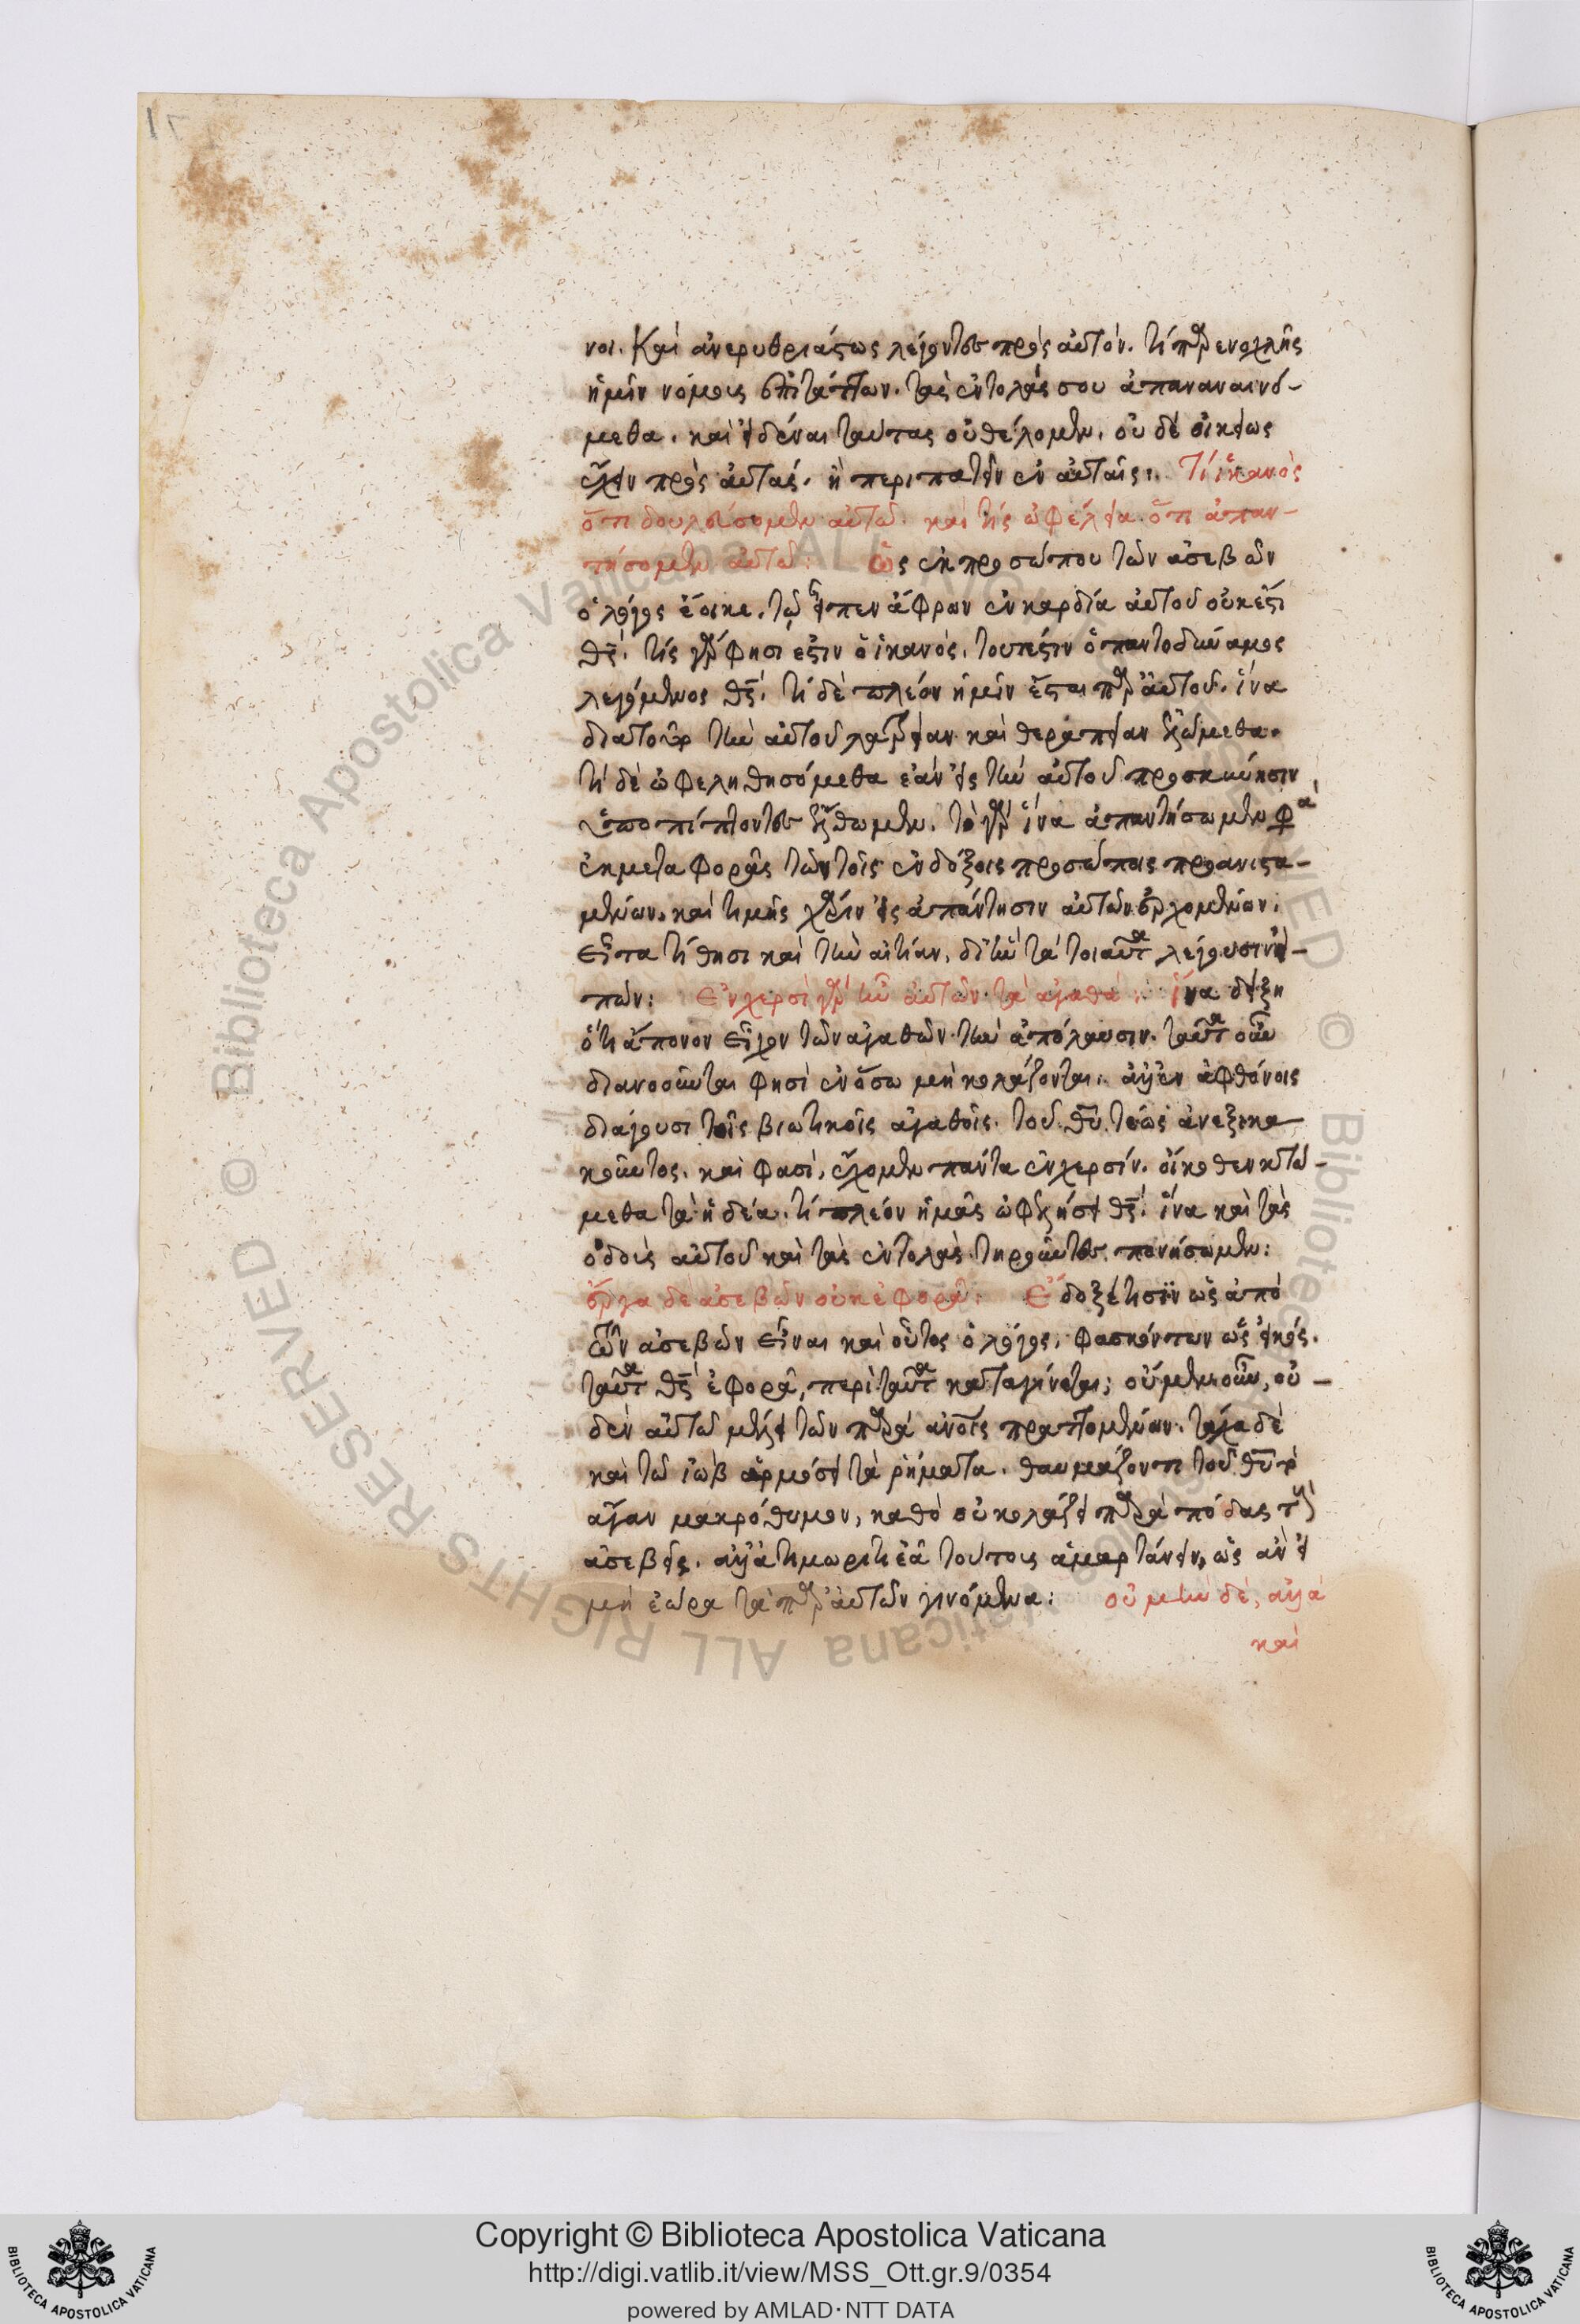 νοι. Καὶ ἀνερυθριάστως λέγοντες πρὸς αὐτόν. τί παρενοχλῆς
ἡμῖν νόμοις ἐπιτάττων. τὰς ἐντολάς σου ἀπαναινό-
μεθα. καὶ εἰδέναι ταύτας οὐ θέλομεν. οὐδὲ οἰκείως
ἔχειν πρὸς αὐτάς. ἢ περιπατεῖν ἐν αὐταῖς: Τί ἱκανὸς
ὅτι δουλεύσομεν αὐτῶ. καὶ τίς ὠφέλεια ὅτι ἀπαν-
τήσομεν αὐτῶ: ὡς ἐκ προσώπου τῶν ἀσεβῶν
ὁ λόγος ἔοικε. τῶ εἶπεν ἄφρων ἐν καρδία αὐτοῦ οὐκ ἔστι
θς. τίς γάρ φησι ἐστιν ὁ ἱκανὸς. τουτέστιν ὁ παντοδύναμος
λεγόμενος θς. τί δὲ πλέον ἡμῖν ἔσται παρ' αὐτοῦ. ἵνα
διατοῦτο τὴν αὐτοῦ λατρείαν καὶ θεραπείαν ἑλώμεθα.
τί δὲ ὠφεληθησόμεθα ἐὰν εἰς τὴν αὐτοῦ προσκύνησιν
ὑποπίπτοντες ἔλθωμεν. τὸ γὰρ ἵνα ἀπαντήσωμεν
ἐκ μεταφορᾶς τῶν τοῖς ἐνδόξοις προσώποις προανιστα-
μένων. καὶ τιμῆς χάριν εἰς ἀπάντησιν αὐτῶν ἐρχομένων.
Εἶτα τίθησι καὶ τὴν αἰτίαν. δι' ἣν τὰ τοιαῦτα λέγουσιν εἰ-
πών: Ἐν χερσὶ γὰρ ἦν αὐτῶν τὰ ἀγαθά: ἵνα δείξη
ὅτι ἄπονον εἶχον τῶν ἀγαθῶν τὴν ἀπόλαυσιν. ταῦτα οὖν
διανοοῦνται φησὶ ἐν ὅσω μὴ κολάζονται. ἀλλ' ἐν ἀφθόνοις
διάγουσι τοῖς βιωτικοῖς ἀγαθοῖς. τοῦ θυ τέως ἀνεξικα-
κοῦντος. καὶ φασὶ, ἔχομεν πάντα ἐν χερσίν. οἴκοθεν κτώ-
μεθα τὰ ἡδέα. τί πλέον ἡμᾶς ὠφελήσει θς. ἵνα καὶ τὰς
ὁδοὺς αὐτοῦ καὶ τὰς ἐντολὰς τηροῦντες πονήσωμεν:
ἔργα δὲ ἀσεβῶν οὐκ ἐφορᾶ: Ἔδοξέ τισϊν ὡς ἀπὸ
τῶν ἀσεβῶν εἶναι καὶ οὗτος ὁ λόγος. φασκόντων ὡς εἰκός.
ταῦτα θς ἐφορᾶ, περὶ ταῦτα καταγίνεται; οὐμενοῦν, οὐ-
δὲν αὐτῶ μέλει τῶν παρὰ ἀνοις πραττομένων. τάχα δὲ
καὶ τῶ ἰὼβ ἁρμόσει τὰ ῥήματα. θαυμάζοντι τοῦ θυ τὸ
ἄγαν μακρόθυμον, καθὸ οὐ κολάζει παρὰ πόδας τοὺς
ἀσεβεῖς. ἀλλ' ἀτιμωρητὶ ἐᾶ τούτους ἁμαρτάνειν, ὡς ἂν εἰ
μὴ ἑώρα τὰ παρ' αὐτῶν γινόμενα: οὐ μὴν δὲ, ἀλλὰ
καὶ
Copyright © Biblioteca Apostolica Vaticana
http://digi.vatlib.it/view/MSS_Ott.gr.9/0354
powered by AMLAD·NTT DATA